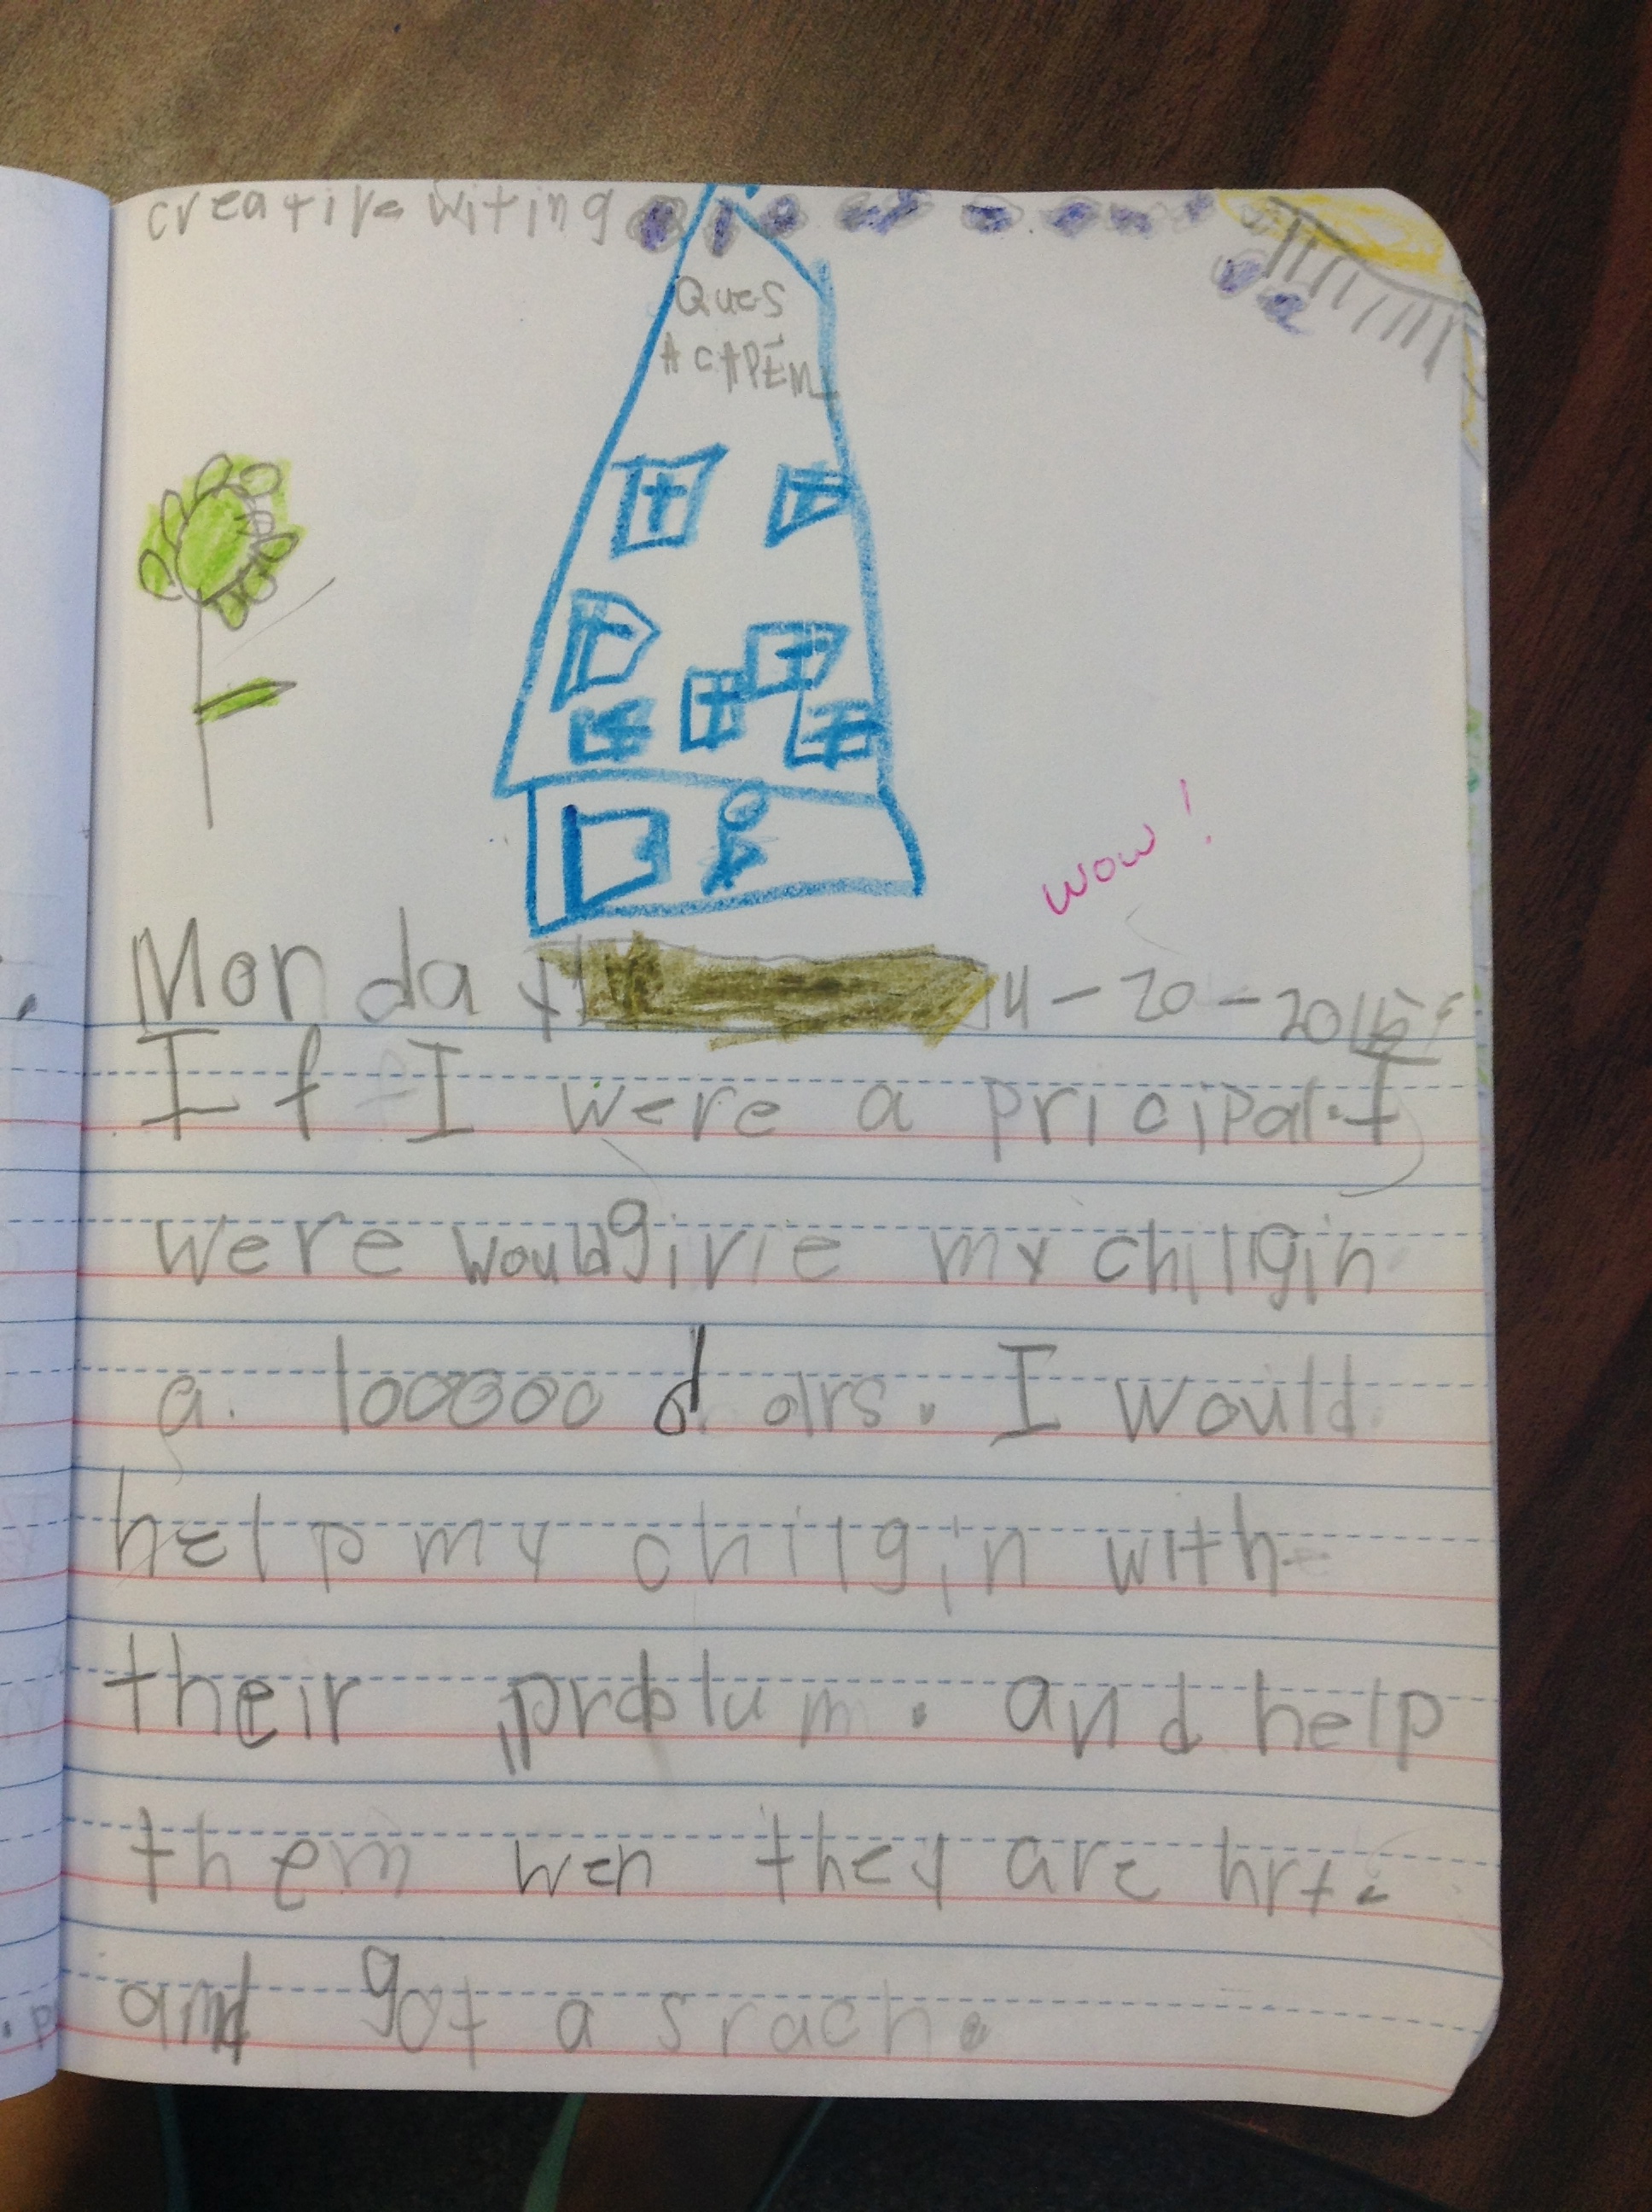 creative writing
Ques
ACADEM
wow!
Monday 4-20-2015
If I were a pricipal. I
were would givie my chilgin
a. 100000 d ars. I would
help my chilgin with
their prolum. and help
them wen they are hrt.
and got a srach.